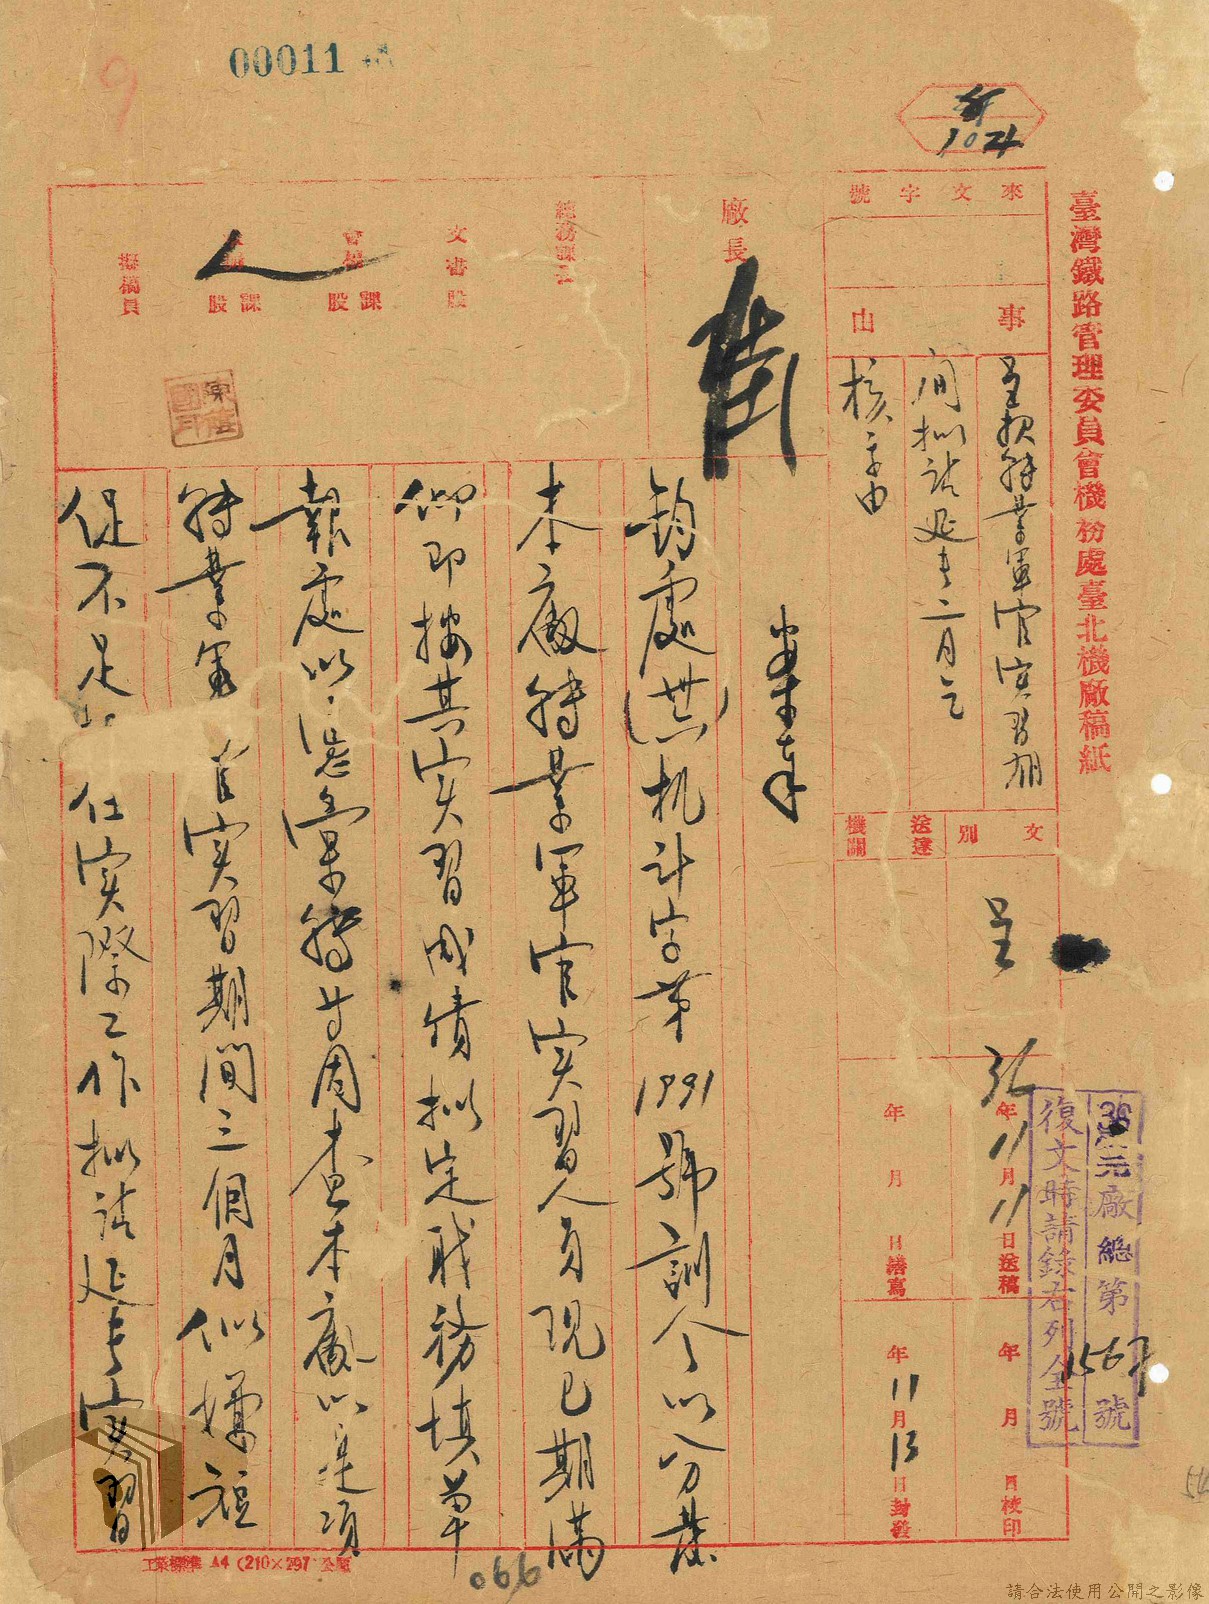 00011
9
1024
臺灣鐵路管理委員會機務處臺北機廠稿紙
來文字號
事由
呈報轉業軍官實習期
間擬請延長二月乞
核示由
文別
呈
送達機關
36年11月11日送稿
年月日繕寫
年月日校印
年11月13日封發
36元廠總第1567號
復文時請錄右列全號
廠長
總務課
文書股
會稿
課股
課股
擬稿員
案奉
鈞處(卅六)机計字第1991號訓令以分發
本廠轉業軍官實習人員現已期滿
仰即按其實習成績擬定職務填單
報處以憑彙轉等因查本廠以是項
轉業軍官實習期間三個月似嫌短
促不足 任實際工作擬請延長實習
工業標準 A4 (210×297 公厘
066
請合法使用公開之影像